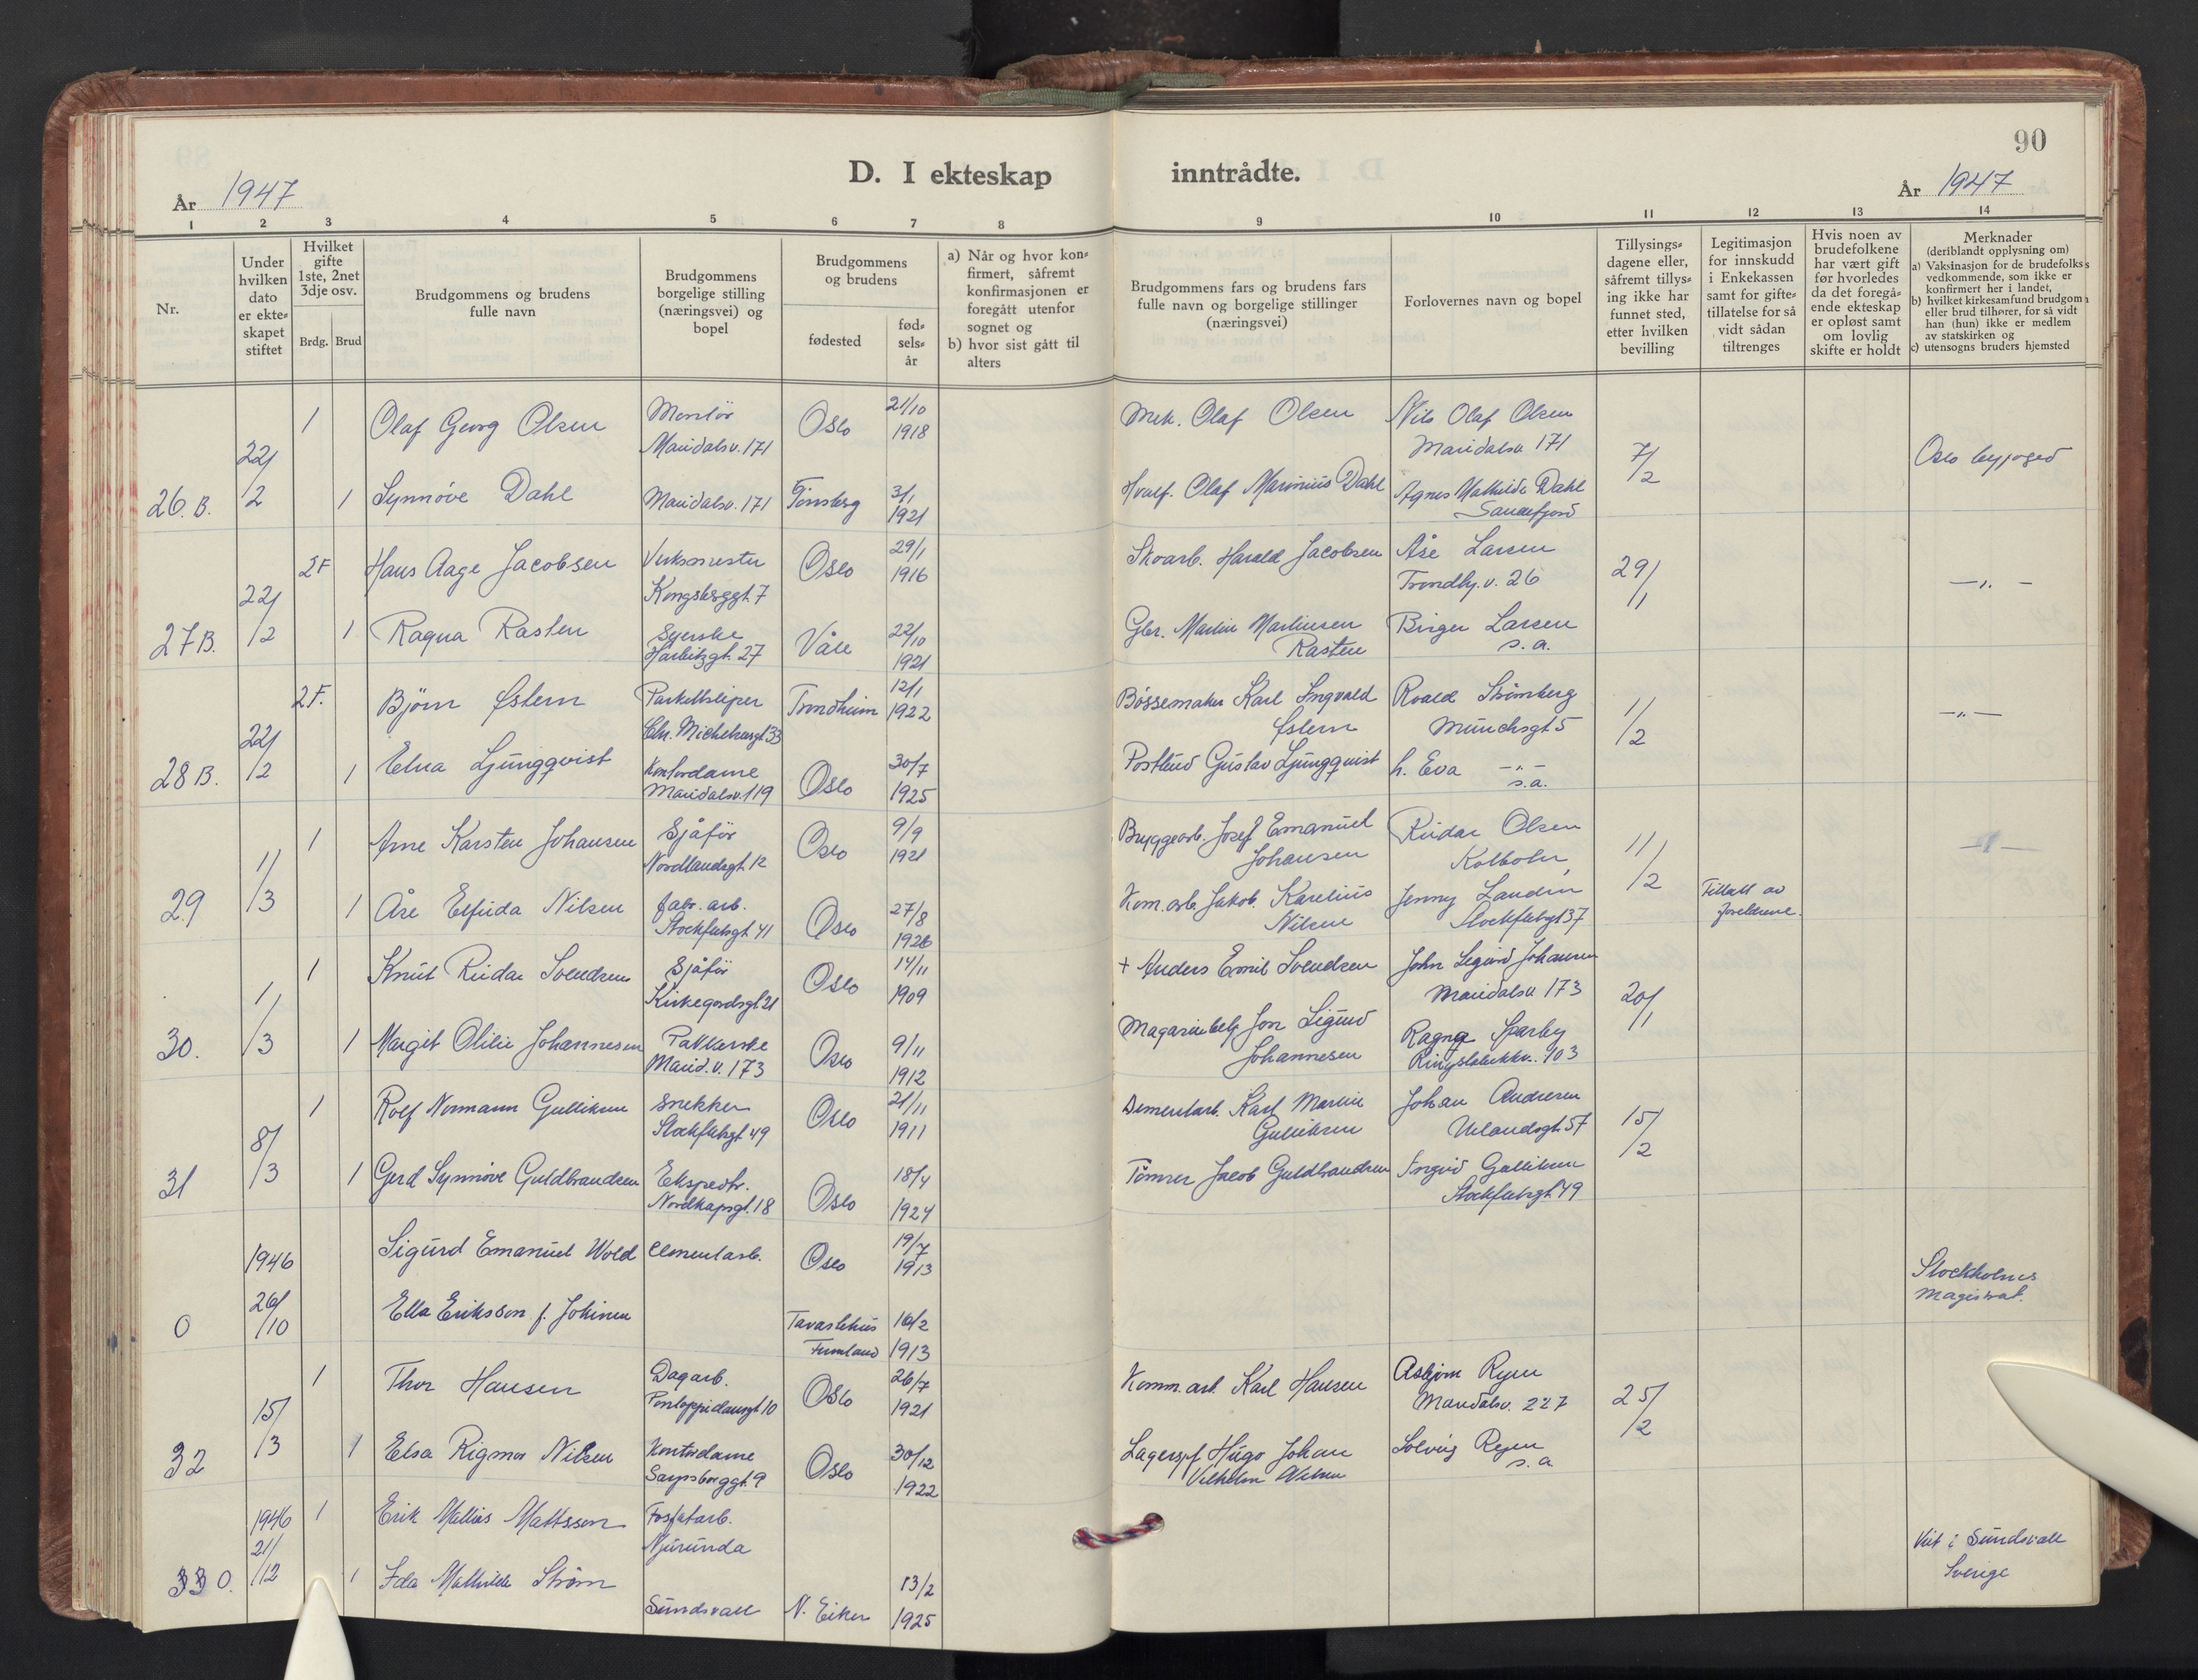 90
D. I ekteskap inntrådte.
År 1947
År 1947
1 2 3 4 5 6 7 8 9 10 11 12 13 14
Nr.
Under hvilken dato er ekte-skapet stiftet
Hvilket gifte 1ste, 2net 3dje osv.
Brdg. Brud
Brudgommens og brudens fulle navn
Brudgommens borgelige stilling (næringsvei) og bopel
Brudgommens og brudens
fødested
fød-sels-år
a) Når og hvor kon-firmert, såfremt konfirmasjonen er foregått utenfor sognet og
b) hvor sist gått til alters
Brudgommens fars og brudens fars fulle navn og borgelige stillinger (næringsvei)
Forlovernes navn og bopel
Tillysings-dagene eller, såfremt tillys-ing ikke har funnet sted, etter hvilken bevilling
Legitimasjon for innskudd i Enkekassen samt for gifte-tillatelse for så vidt sådan tiltrenges
Hvis noen av brudefolkene har vært gift før hvorledes da det foregå-ende ekteskap er opløst samt om lovlig skifte er holdt
Merknader
(deriblandt opplysning om)
a) Vaksinasjon for de brudefolks vedkommende, som ikke er konfirmert her i landet,
b) hvilket kirkesamfund brudgom eller brud tilhører, for så vidt han (hun) ikke er medlem av statskirken og
c) utensogns bruders hjemsted
1 Olaf Georg Olsen Montör Oslo 21/10 Mek. Olaf Olsen Nils Olaf Olsen
Maridalsv. 171 1918 Maridalsv 171
22/2 7/2 Oslo byfoged
26.B. 1 Synnöve Dahl Maridalsv. 171 Tönsberg 3/1 Hvalf. Olaf Marinius Dahl Agnes Mathilde Dahl
1921 Sandefjord
2F Hans Aage Jacobsen Verksmester Oslo 29/1 Skoarb. Harald Jacobsen Åse Larsen
Kongsberggt. 7 1916 Trondhj.v. 26 29/1 —"—
22/2
27B. 1 Ragna Rasten Syerske Våle 22/10 Gbr. Martin Martinsen Birger Larsen
Hårbitzgt. 27 1921 Rasten s.a.
2F. Björn Østern Parkettsliper Trondheim 12/1 Bössemaker Karl Ingvald Roald Strömberg
Chr. Michelsensgt 33 1922 Østern Münchsgt 5 11/2 —"—
22/2
28B. 1 Elna Ljungqvist Kontordame Oslo 30/7 Postbud Gustav Ljungqvist h. Eva —"—
Maridalsv. 119 1925 s.a.
1 Arne Karsten Johansen Sjåför Oslo 9/9 Bryggearb. Josef Emanuel Reidar Olsen
Nordlandsgt. 12 1921 Johansen Kolbotn 11/2
1/3
29 1 Åse Elfrida Nilsen fabr. arb. Oslo 27/8 Kom. arb. Jakob Karelius Jenny Landin Tillatt av
Stockfletsgt. 41 1926 Nilsen Stockfletsgt 37 foreldrene.
1 Knut Reidar Svendsen Sjåför Oslo 14/11 + Anders Emil Svendsen John Sigurd Johansen
Kirkegårdsgt 21 1909 Maridalsv 173 20/1
1/3
30. 1 Margit Otilie Johannesen Pakkerske Oslo 9/11 Magasinbetj. Jon Sigurd Ragna Sparby
Marid.v. 173 1912 Johannesen Ringstabekkv. 103
1 Rolf Normann Gulliksen Snekker Oslo 21/11 Sementarb. Karl Martin Johan Andresen
Stockfletsgt 49 1911 Gulliksen Uelandsgt. 57 15/2
8/3
31 1 Gerd Synnöve Guldbrandsen Ekspedtr. Oslo 18/4 Tömrer Jacob Guldbrandsen Ingrid Gulliksen
Nordkapsgt. 18 1924 Stockfletsgt. 49
1946 Sigurd Emanuel Wold Cementarb. Oslo 19/7 1913 Stockholms
26/10 magistrat.
0 Ella Eriksson f. Jokinen Tavastehus 16/2
Finnland 1913
1 Thor Hansen Dagarb. Oslo 26/7 Komm. arb. Karl Hansen Asbjørn Ryen
Pontoppidansgt 10 1921 Maridalsv. 227 25/2
15/3
32 1 Elsa Rigmor Nilsen Kontordame Oslo 30/12 Lagersjef Hugo Johan Solveig Ryen
Sarpsborggt. 9 1922 Vilhelm Nilsen s.a
1946 1 Erik Mattias Mattsson Fosfatarb.
21/12 Njurunda Viet i Sundsvall
33 O. 1 Ida Mathilde Ström 13/2 Sverige
Sundsvall N. Eiker 1925